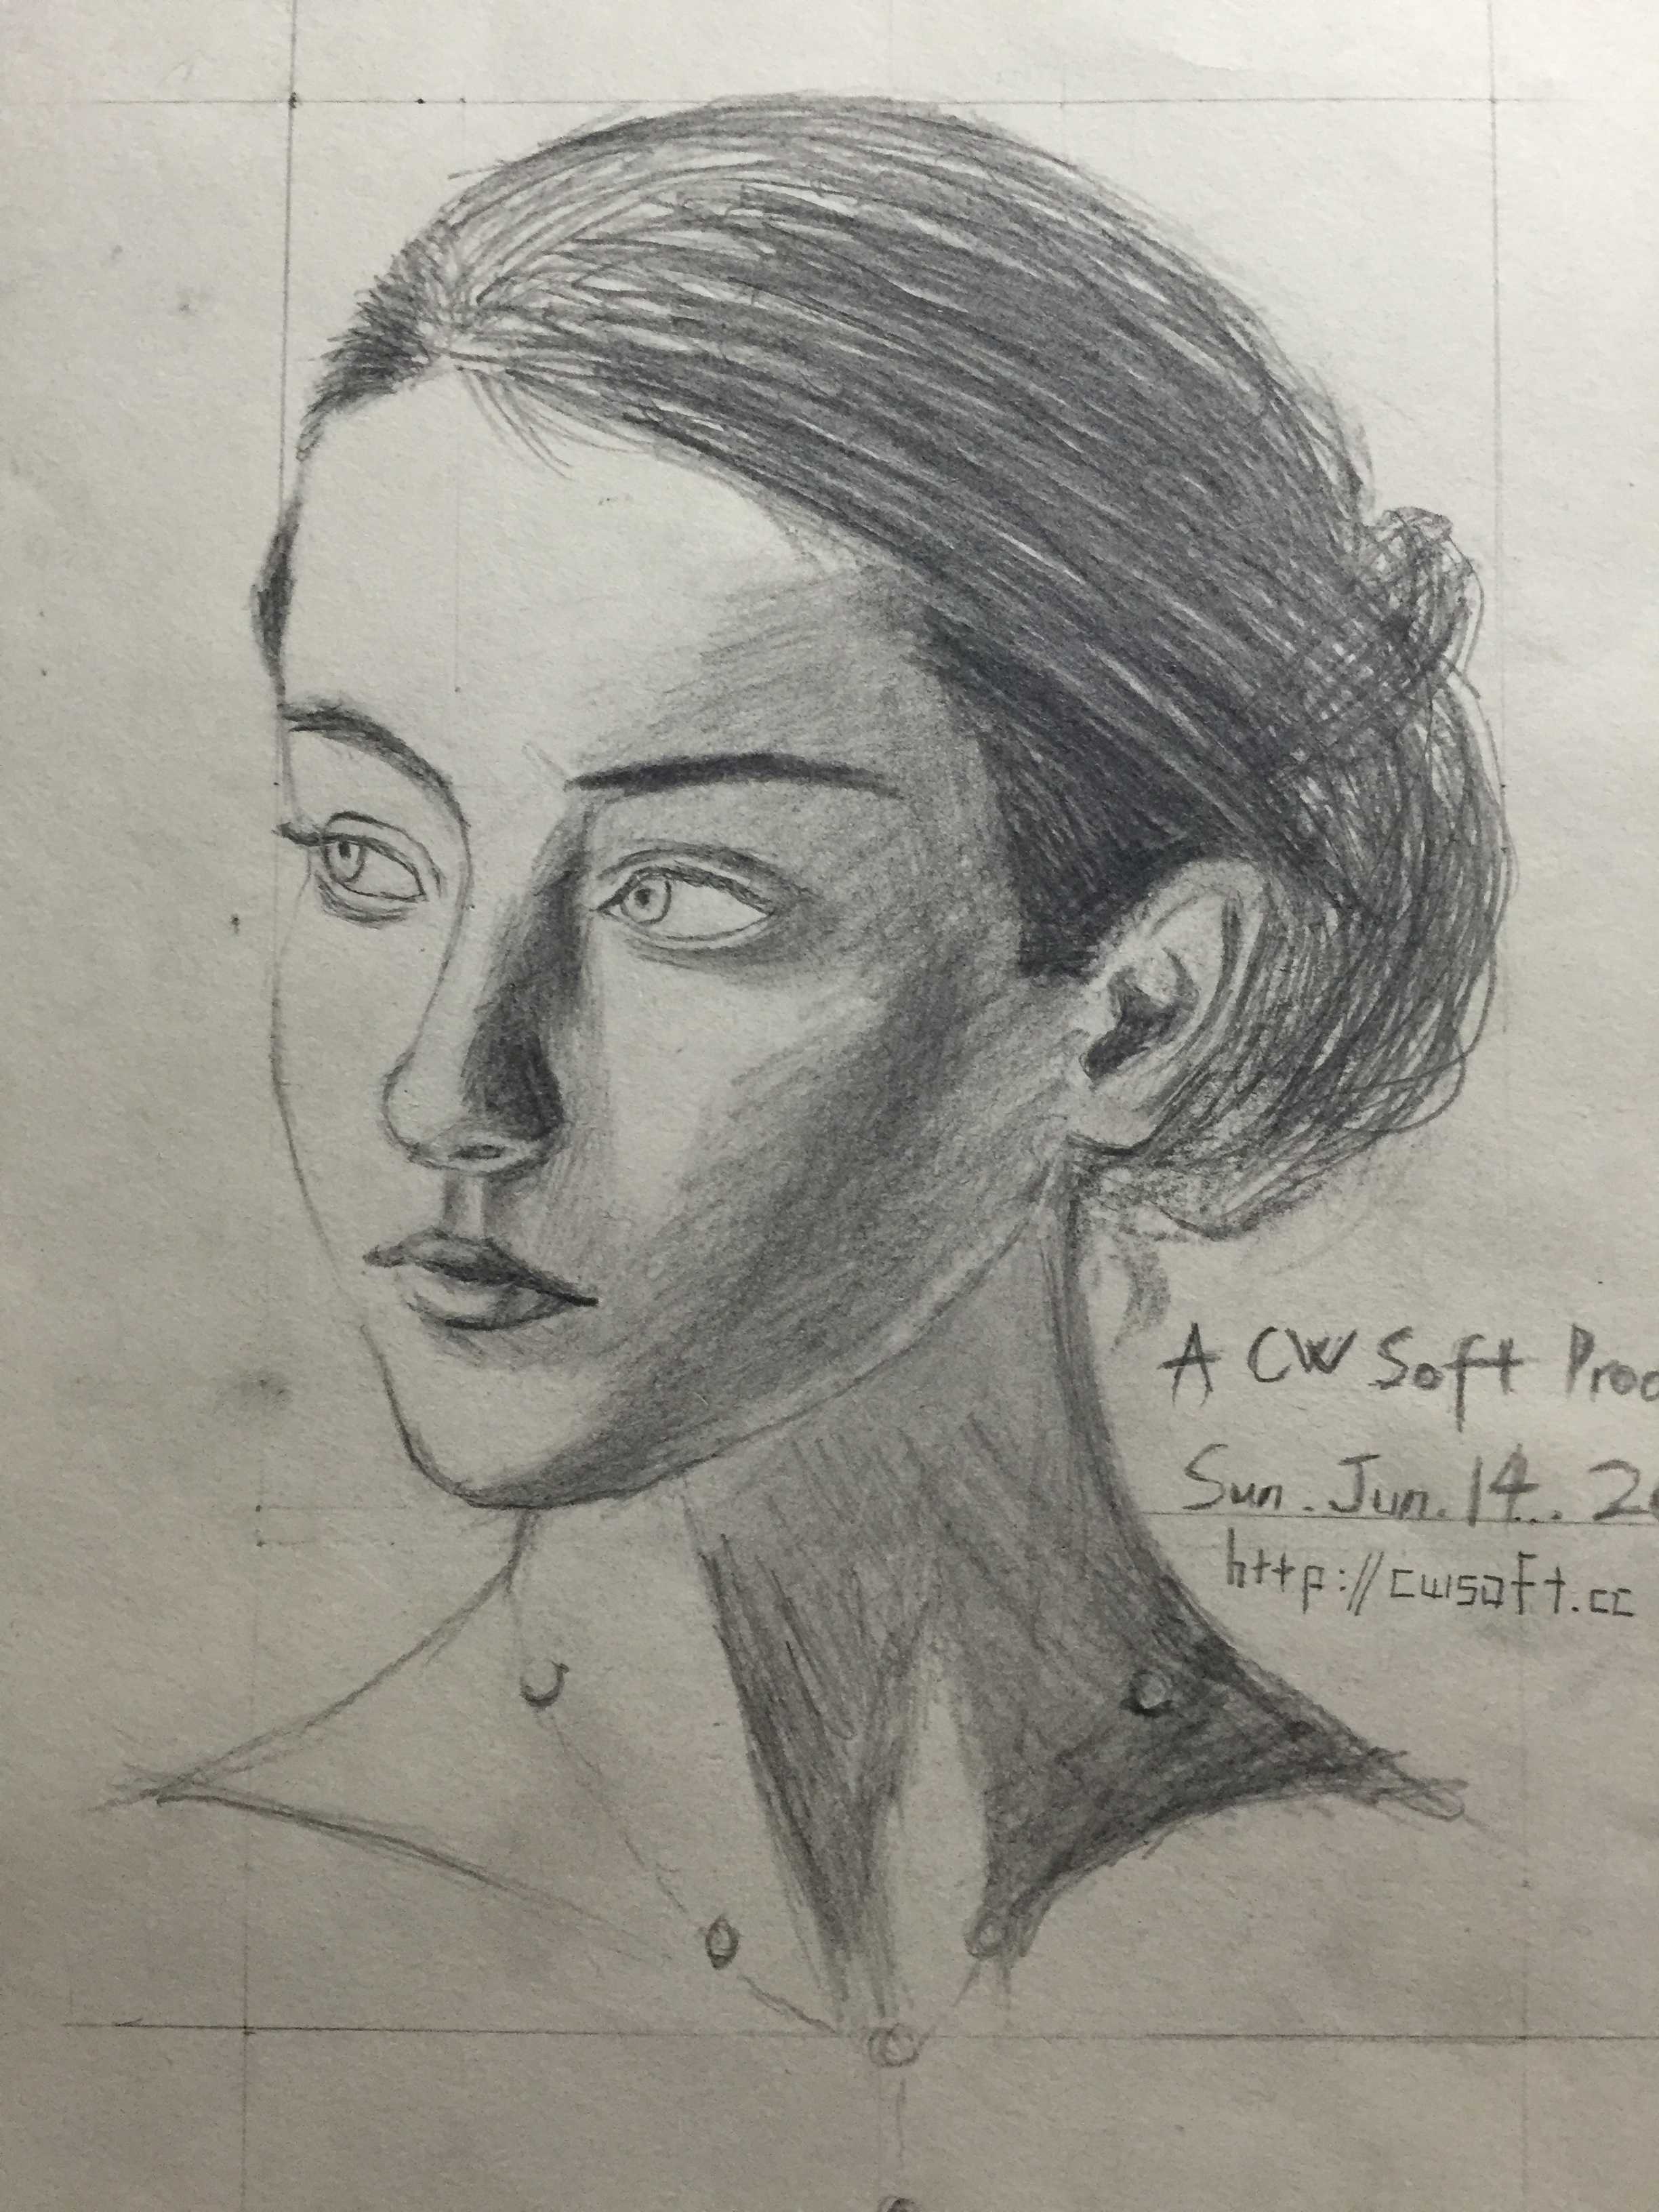 A CW Soft
Sun. Jun. 14..
http://cwsoft.cc